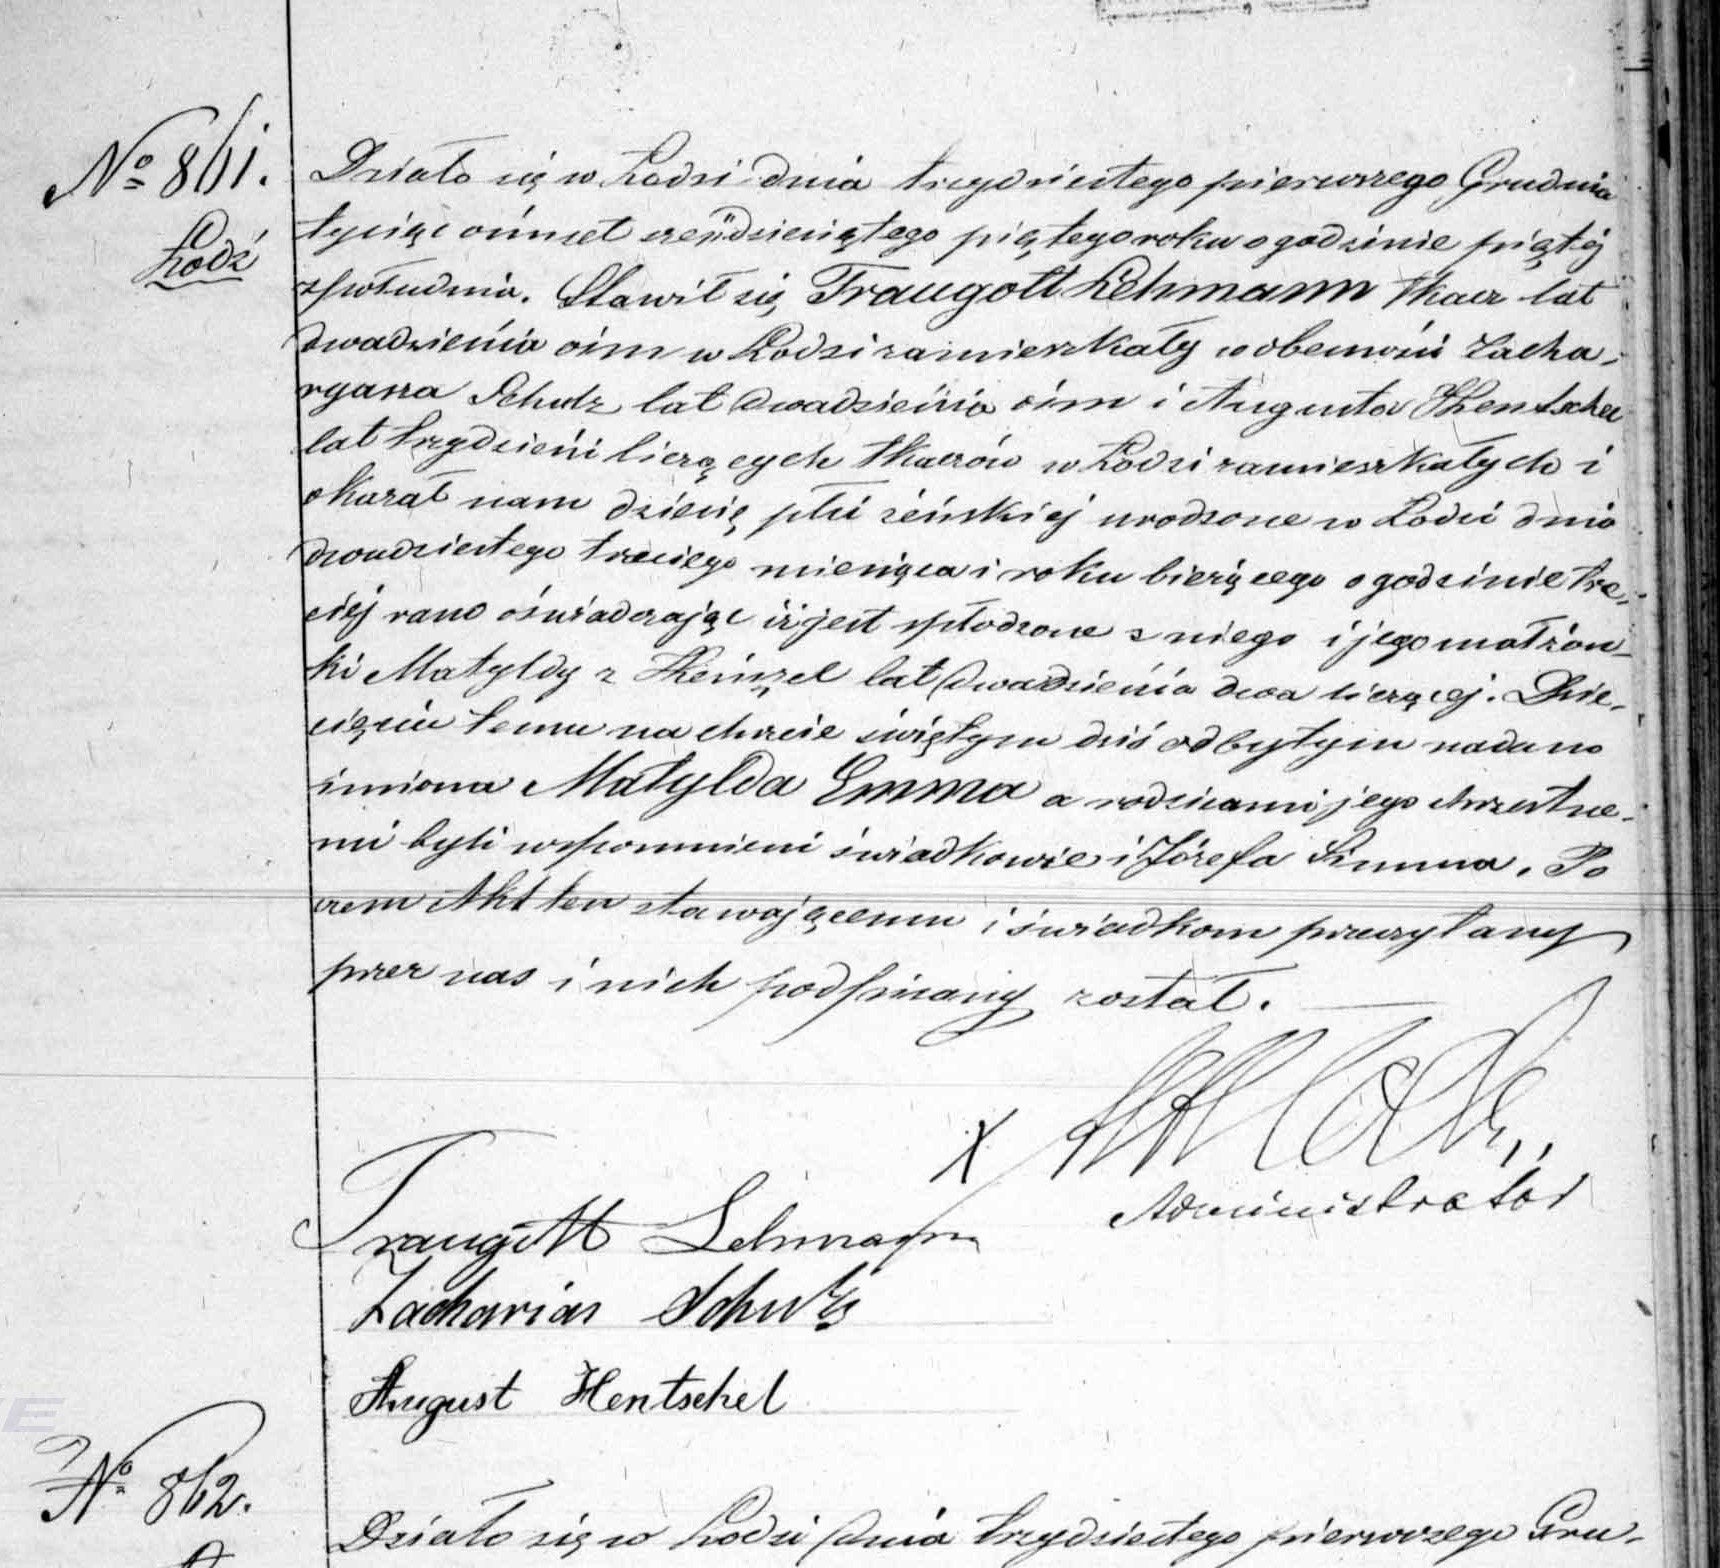 No 861.
Łódź
Działo się w Łodzi dnia trzydziestego pierwszego Grudnia
tysiąc ośmset sześćdziesiątego piątego roku o godzinie piątej
z południa. Stawił się Traugott Lehmann tkacz lat
dwadzieścia ośm w Łodzi zamieszkały w obecności Zacha-
ryasza Schulz lat dwadzieścia ośm i Augusta Hentschel
lat trzydzieści liczących tkaczów w Łodzi zamieszkałych i
okazał nam dziecię płci żeńskiej urodzone w Łodzi dnia
dwudziestego trzeciego miesiąca i roku bieżącego o godzinie trze-
ciej rano oświadczając iż jest spłodzone z niego i jego małżon-
ki Matyldy z Heinzel lat dwadzieścia dwa liczącej. Dzie-
cięciu temu na chrzcie świętym dziś odbytym nadano
imiona Matylda Emma a rodzicami jego chrzestne-
mi byli wspomnieni świadkowie i Józefa Simma. Po
czem Akt ten stawającemu i świadkom przeczytany
przez nas i nich podpisany został.
X
Administrator
Traugott Lehmann
Zacharias Schulz
August Hentschel
No 862.
Działo się w Łodzi dnia trzydziestego pierwszego Gru-